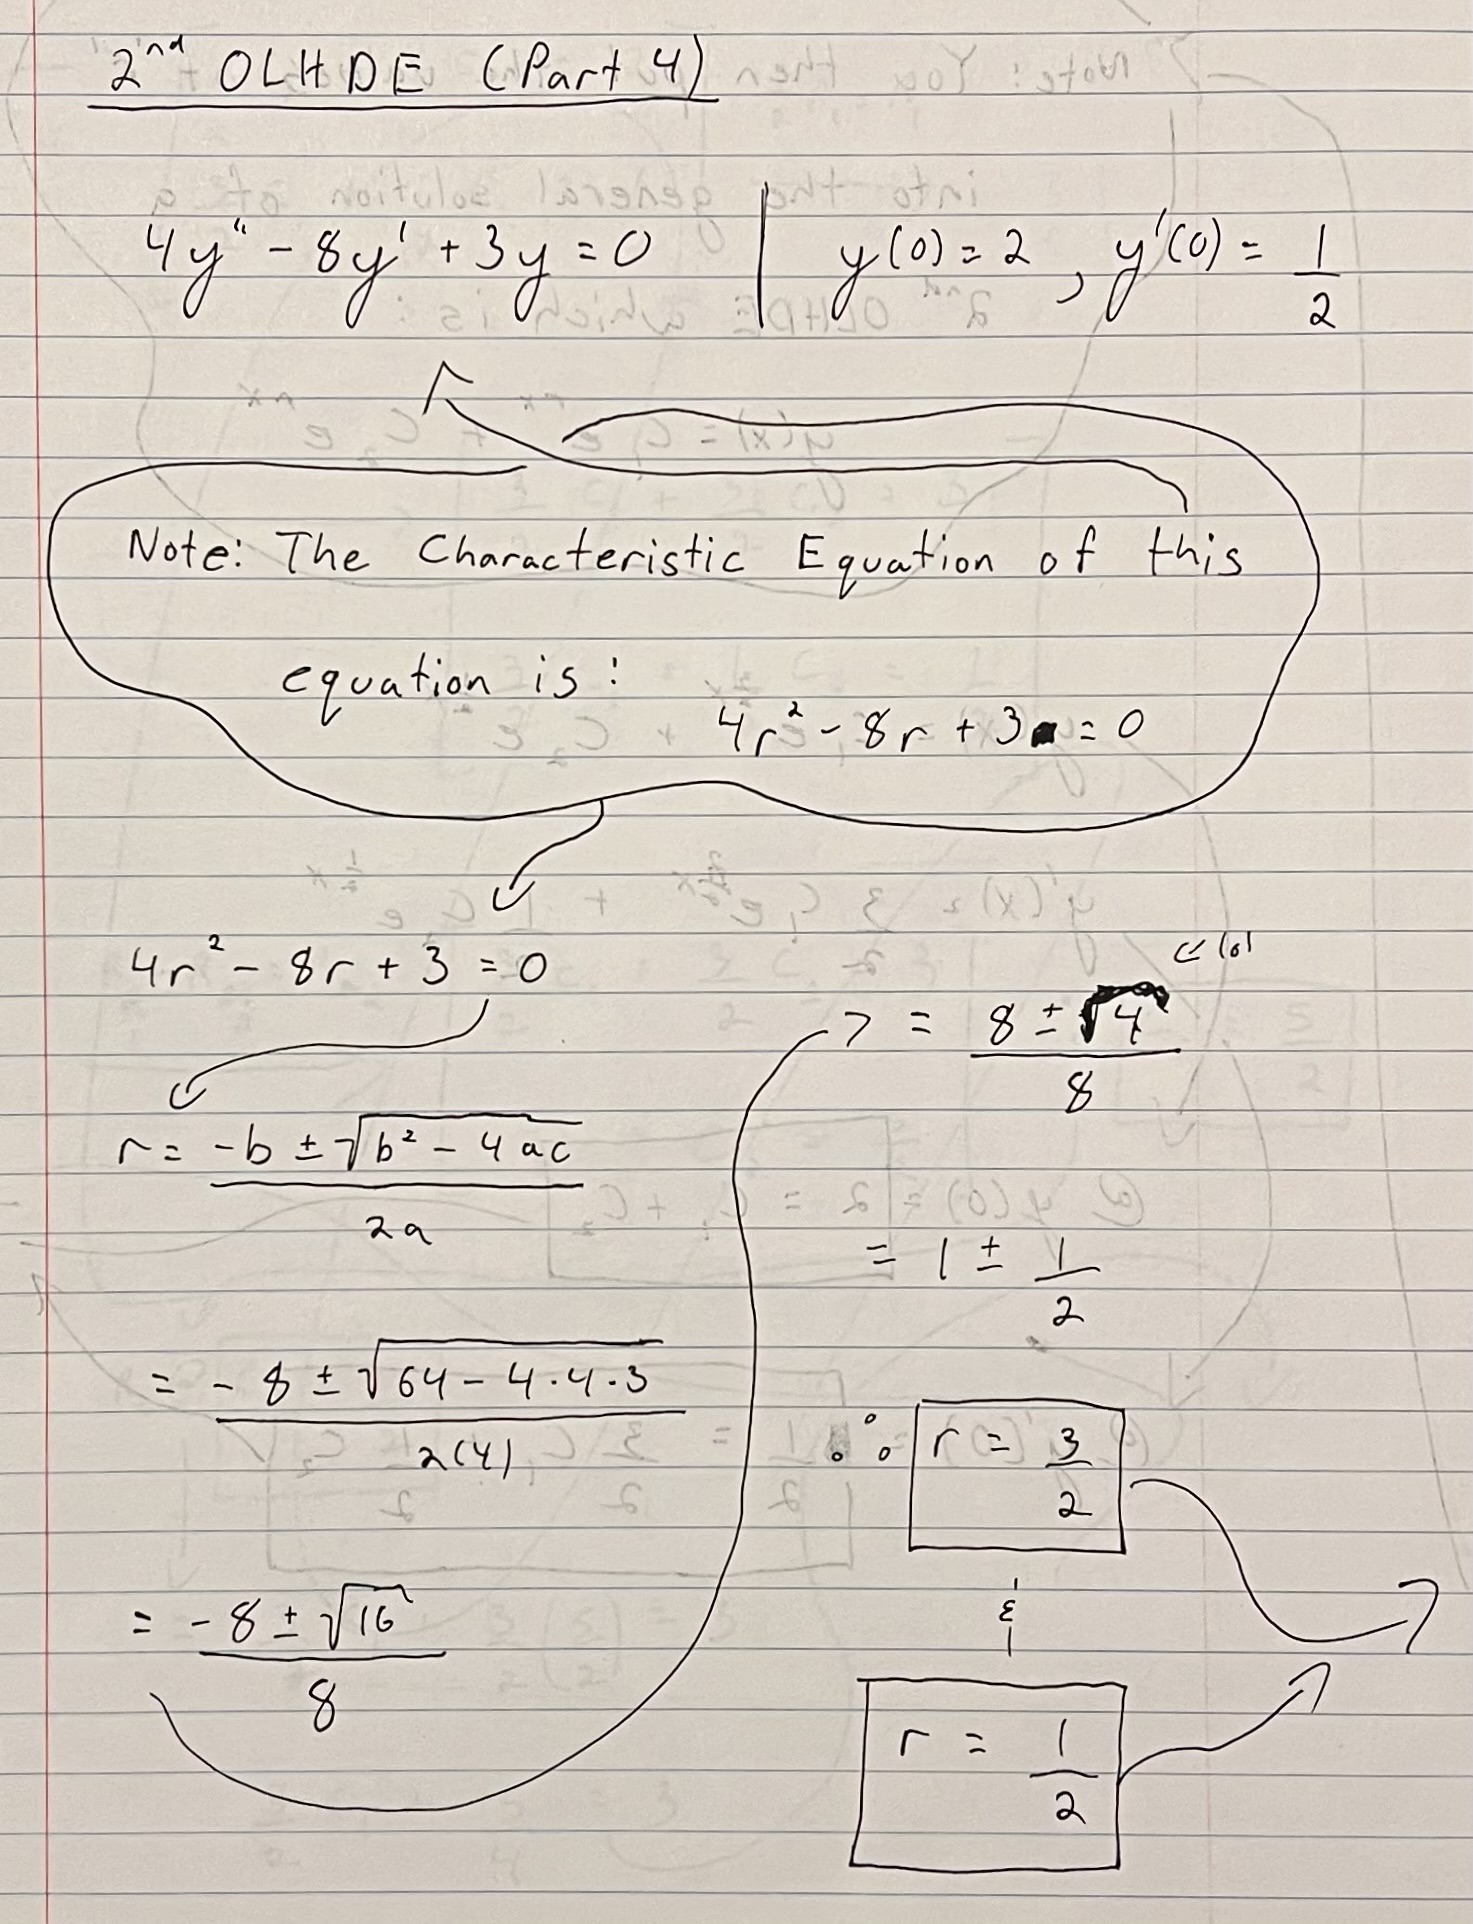 2nd OLHDE (Part 4)
4y" - 8y' + 3y = 0 | y(0) = 2 , y'(0) = 1/2
Note: The Characteristic Equation of this
equation is:
4r² - 8r + 3 = 0
4r² - 8r + 3 = 0
r = (-b ± √(b² - 4ac))/2a
= (-8 ± √(64 - 4·4·3))/2(4)
= (-8 ± √16)/8
← lol
= (8 ± √4)/8
= 1 ± 1/2
∴ r = 3/2
&
r = 1/2